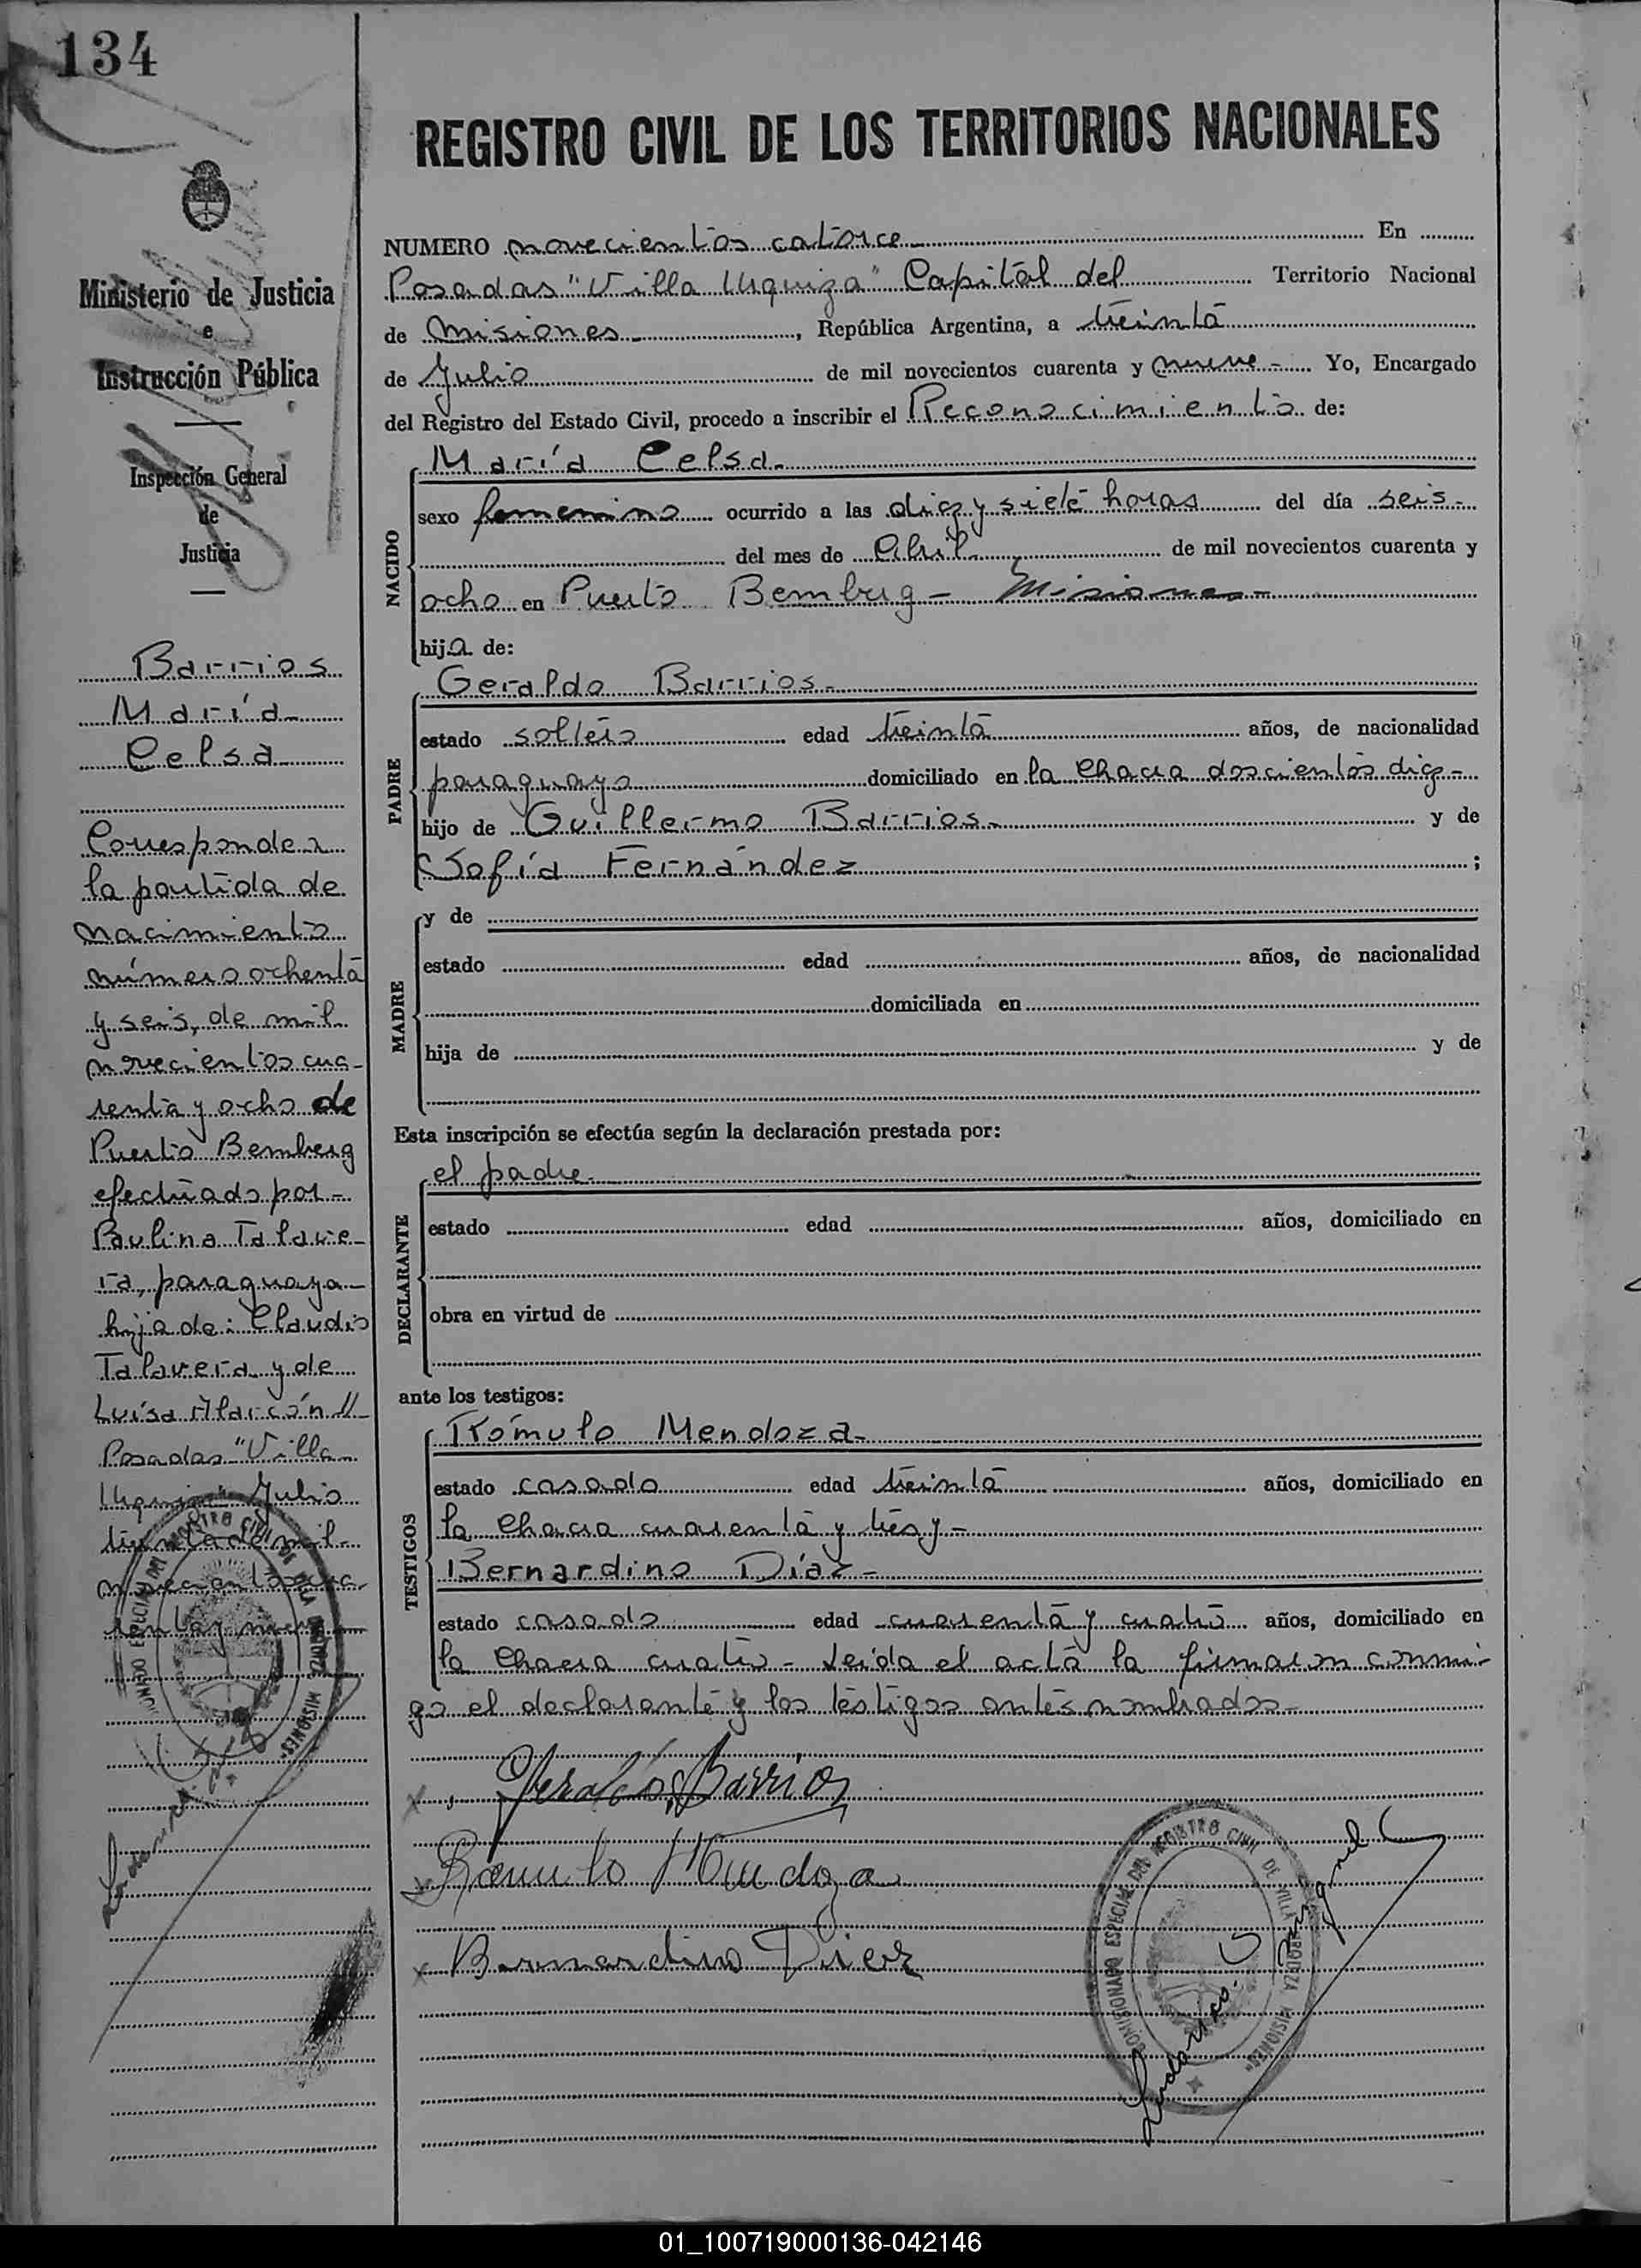 134
REGISTRO CIVIL DE LOS TERRITORIOS NACIONALES
Ministerio de Justicia
e
Instrucción Pública
Inspección General
de
Justicia
Barrios
María
Celsa
Corresponde a
la partida de
nacimiento
número ochenta
y seis, de mil
novecientos cua-
renta y ocho de
Puerto Bemberg
efectuado por-
Paulina Talave-
ra, paraguaya-
hija de: Claudio
Talavera y de
Luísa Alarcón //-
Posadas "Villa
Urquiza" Julio
treinta de mil-
novecientos cua-
renta y nueve
NUMERO novecientos catorce En
Posadas "Villa Urquiza" Capital del Territorio Nacional
de Misiones , República Argentina, a treinta
de Julio de mil novecientos cuarenta y nueve - Yo, Encargado
del Registro del Estado Civil, procedo a inscribir el Reconocimiento de:
NACIDO
María Celsa-
sexo femenino ocurrido a las diez y siete horas del día seis-
del mes de Abril de mil novecientos cuarenta y
ocho en Puerto Bemberg - Misiones-
hija de:
PADRE
Geraldo Barrios-
estado soltero edad treinta años, de nacionalidad
paraguayo domiciliado en la Chacra doscientos diez-
hijo de Guillermo Barrios- y de
Sofía Fernández ;
MADRE
y de
estado edad años, de nacionalidad
domiciliada en
hija de y de
Esta inscripción se efectúa según la declaración prestada por:
DECLARANTE
el padre-
estado edad años, domiciliado en
obra en virtud de
ante los testigos:
TESTIGOS
Rómulo Mendoza-
estado casado edad treinta años, domiciliado en
la Chacra cuarenta y tres y -
Bernardino Díaz-
estado casado edad cuarenta y cuatro años, domiciliado en
la Chacra cuatro - Leída el acta la firmaron conmi-
go el declarante y los testigos antes nombrados-
Geraldo Barrios
Romulo Mendoza
Bernardino Diez
REGISTRO CIVIL DE VILLA
MISIONES
COMISIONADO ESPECIAL DEL REGISTRO CIVIL DE VILLA
MISIONES
01_100719000136-042146